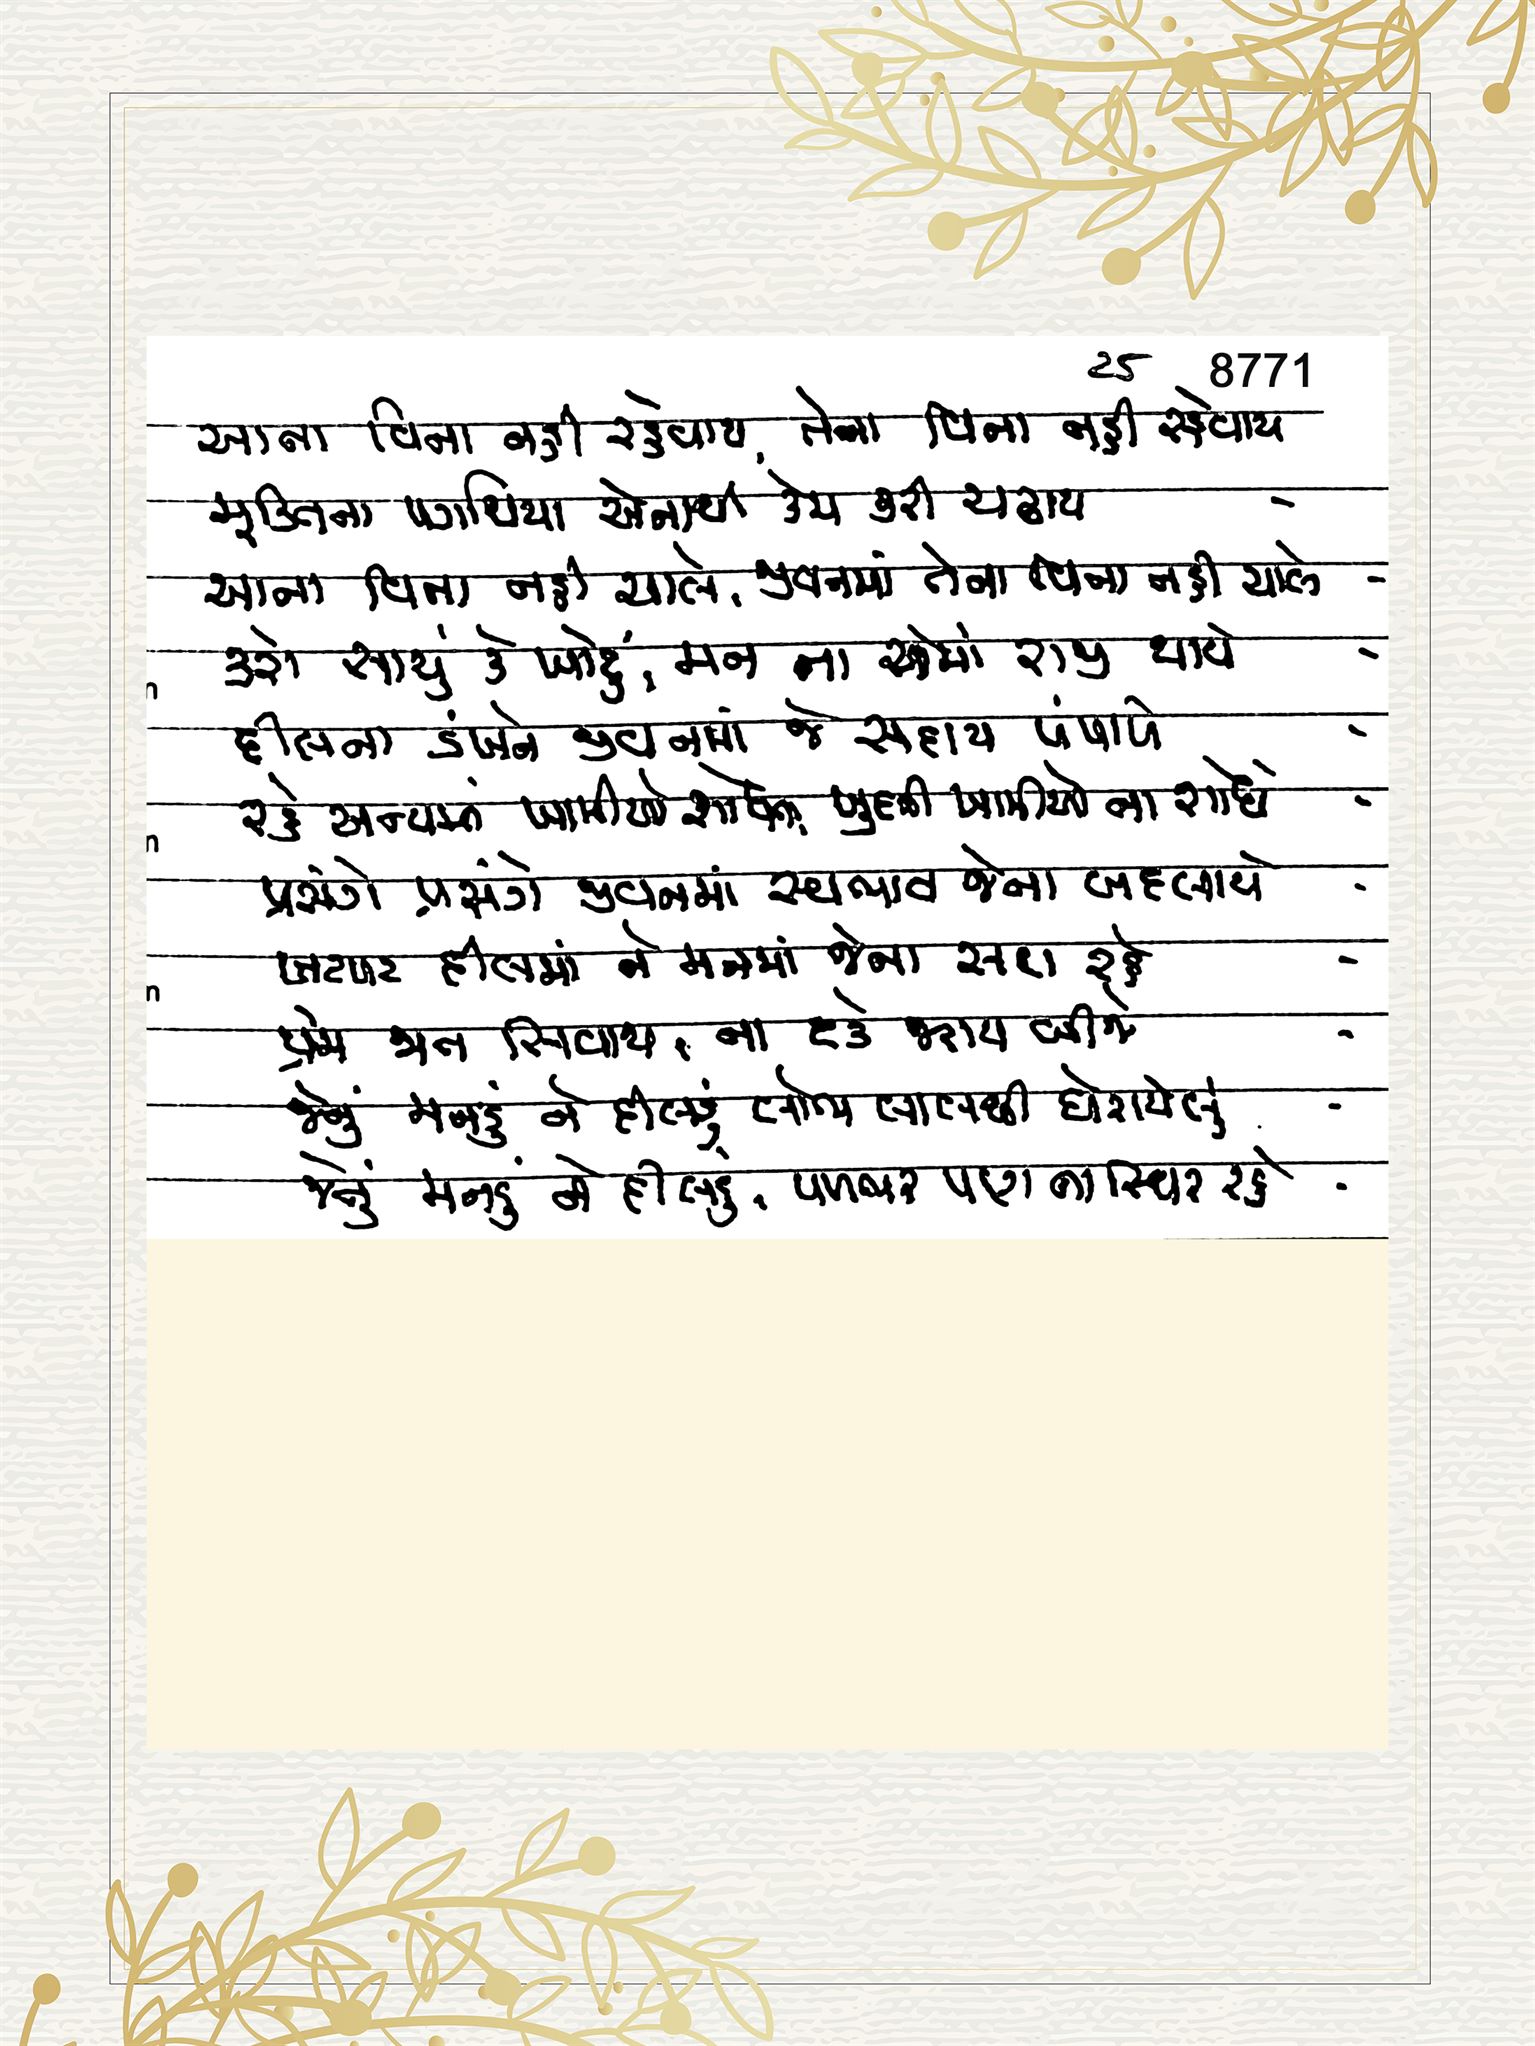 25 8771
આના વિના નહી રહેવાય, તેના વિના નહી સહેવાય
મૂક્તિના પગથિયા એનાથી કેમ કરી ચઢાય -
આના વિના નહી ચાલે, જીવનમાં તેના વિના નહી ચાલે -
કરો સાચું કે ખોટું, મન ના એમાં રાજી થાયે -
દીલના ડંખને જીવનમાં જે સદાય પંપાળે -
રહે અન્યમાં ખામીઓ શોધતા, ખુદની ખામીઓ ના શોધે -
પ્રસંગે પ્રસંગે જીવનમાં સ્વભાવ જેના બદલાયે -
ખટપટ દીલમાં ને મનમાં જેના સદા રહે -
પ્રેમ જામ સિવાય, ના ટકે જરાય બીજે -
જેનું મનડું ને દીલડું લોભ લાલચથી ઘેરાયેલું -
જેનું મનડું ને દીલડું, પળભર પણ ના સ્થિર રહે -